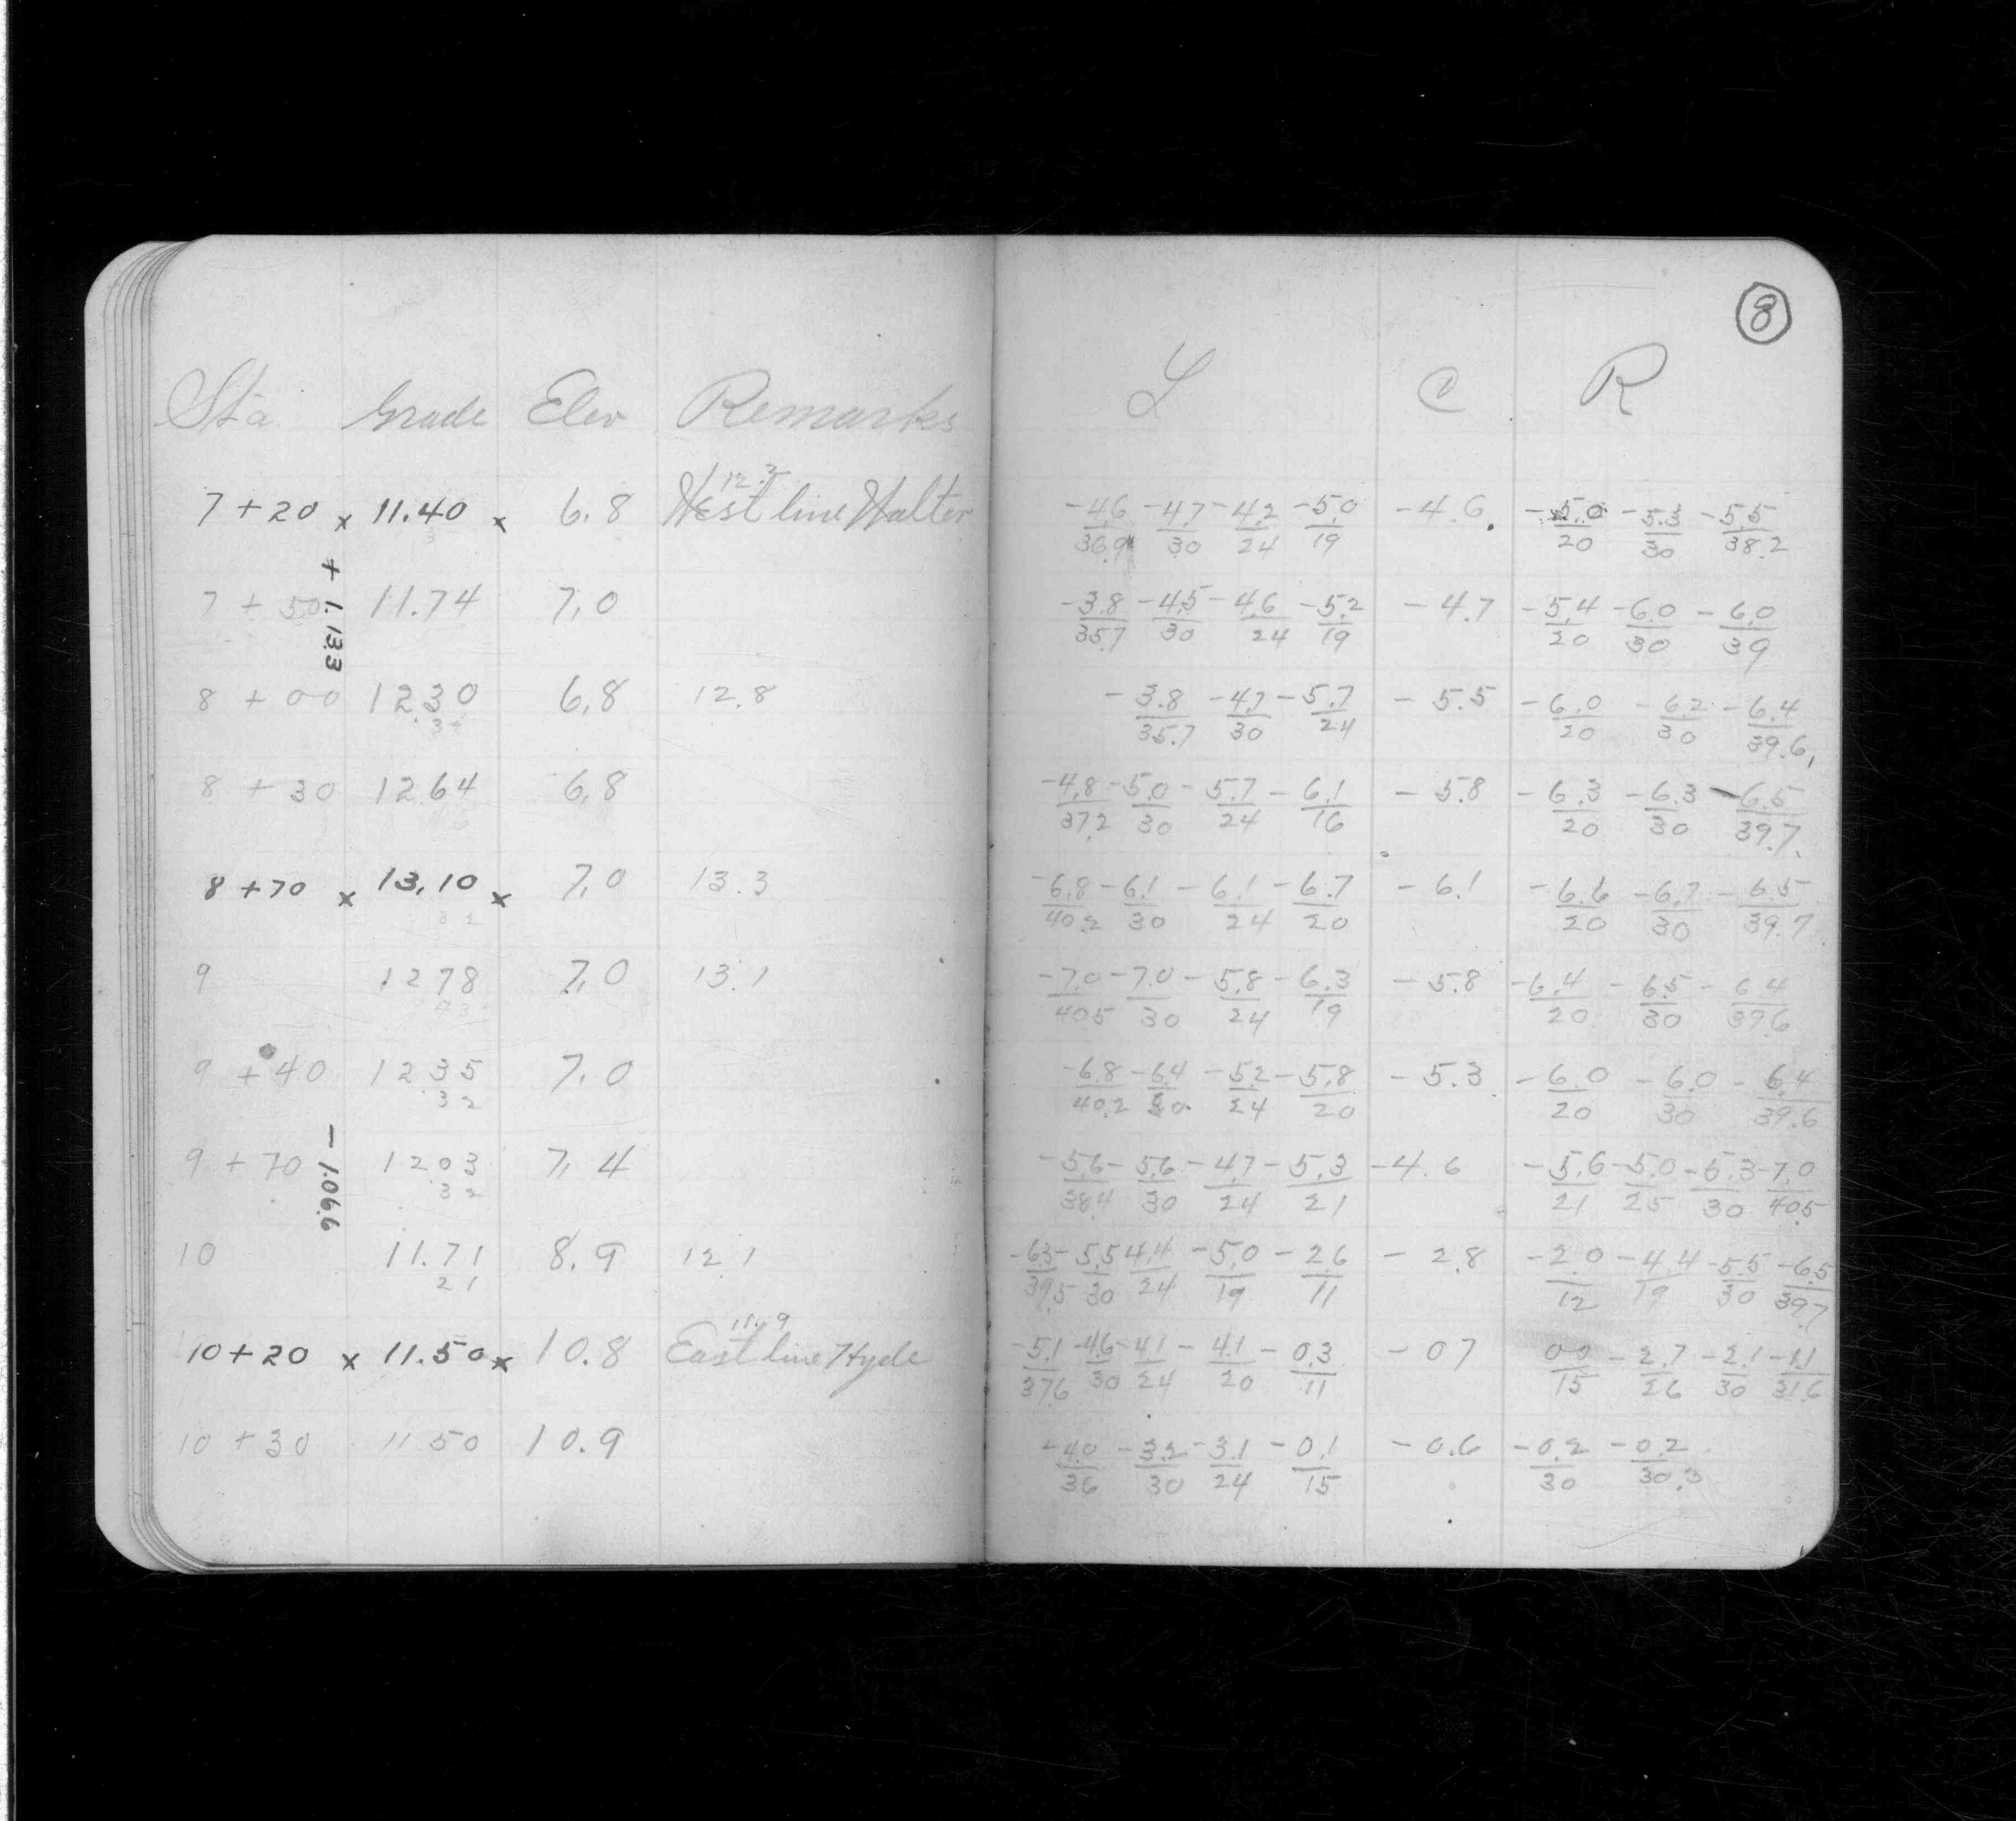 8
Sta Grade Elev Remarks L C R
12.2
7+20 x 11.40 x 6.8 West line Walter -4.6/36.9 -4.7/30 -4.2/24 -5.0/19 -4.6. -5.0/20 -5.3/30 -5.5/38.2
+ 1.133
7 + 50 11.74 7.0 -3.8/35.7 -4.5/30 -4.6/24 -5.2/19 -4.7 -5.4/20 -6.0/30 -6.0/39
8 + 00 12.30 6.8 12.8 -3.8/35.7 -4.7/30 -5.7/24 -5.5 -6.0/20 -6.2/30 -6.4/39.6
8 + 30 12 64 6.8 -4.8/37.2 -5.0/30 -5.7/24 -6.1/16 -5.8 -6.3/20 -6.3/30 -6.5/39.7
8 +70 x 13.10 x 7.0 13.3 -6.8/40.2 -6.1/30 -6.1/24 -6.7/20 -6.1 -6.6/20 -6.7/30 -6.5/39.7
32
9 12 78 7.0 13.1 -7.0/40.5 -7.0/30 -5.8/24 -6.3/19 -5.8 -6.4/20 -6.5/30 -6.4/39.6
9 + 40 12 35 7.0 -6.8/40.2 -6.4/30 -5.2/24 -5.8/20 -5.3 -6.0/20 -6.0/30 -6.4/39.6
32
- 1.066
9 + 70 12 03 7.4 -5.6/38.4 -5.6/30 -4.7/24 -5.3/21 -4.6 -5.6/21 -5.0/25 -5.3/30 -7.0/40.5
32
10 11.71 8.9 12.1 -6.3/39.5 -5.5/30 4.4/24 -5.0/19 -2.6/11 -2.8 -2.0/12 -4.4/19 -5.5/30 -6.5/39.7
21
11.9
10+20 x 11.50 x 10.8 East line Hyde -5.1/37.6 -4.6/30 -4.1/24 -4.1/20 -0.3/11 -0.7 0.0/15 -2.7/26 -2.1/30 -1.1/31.6
10 + 30 11 50 10.9 -4.0/36 -3.2/30 -3.1/24 -0.1/15 -0.6 -0.2/30 -0.2/30.3